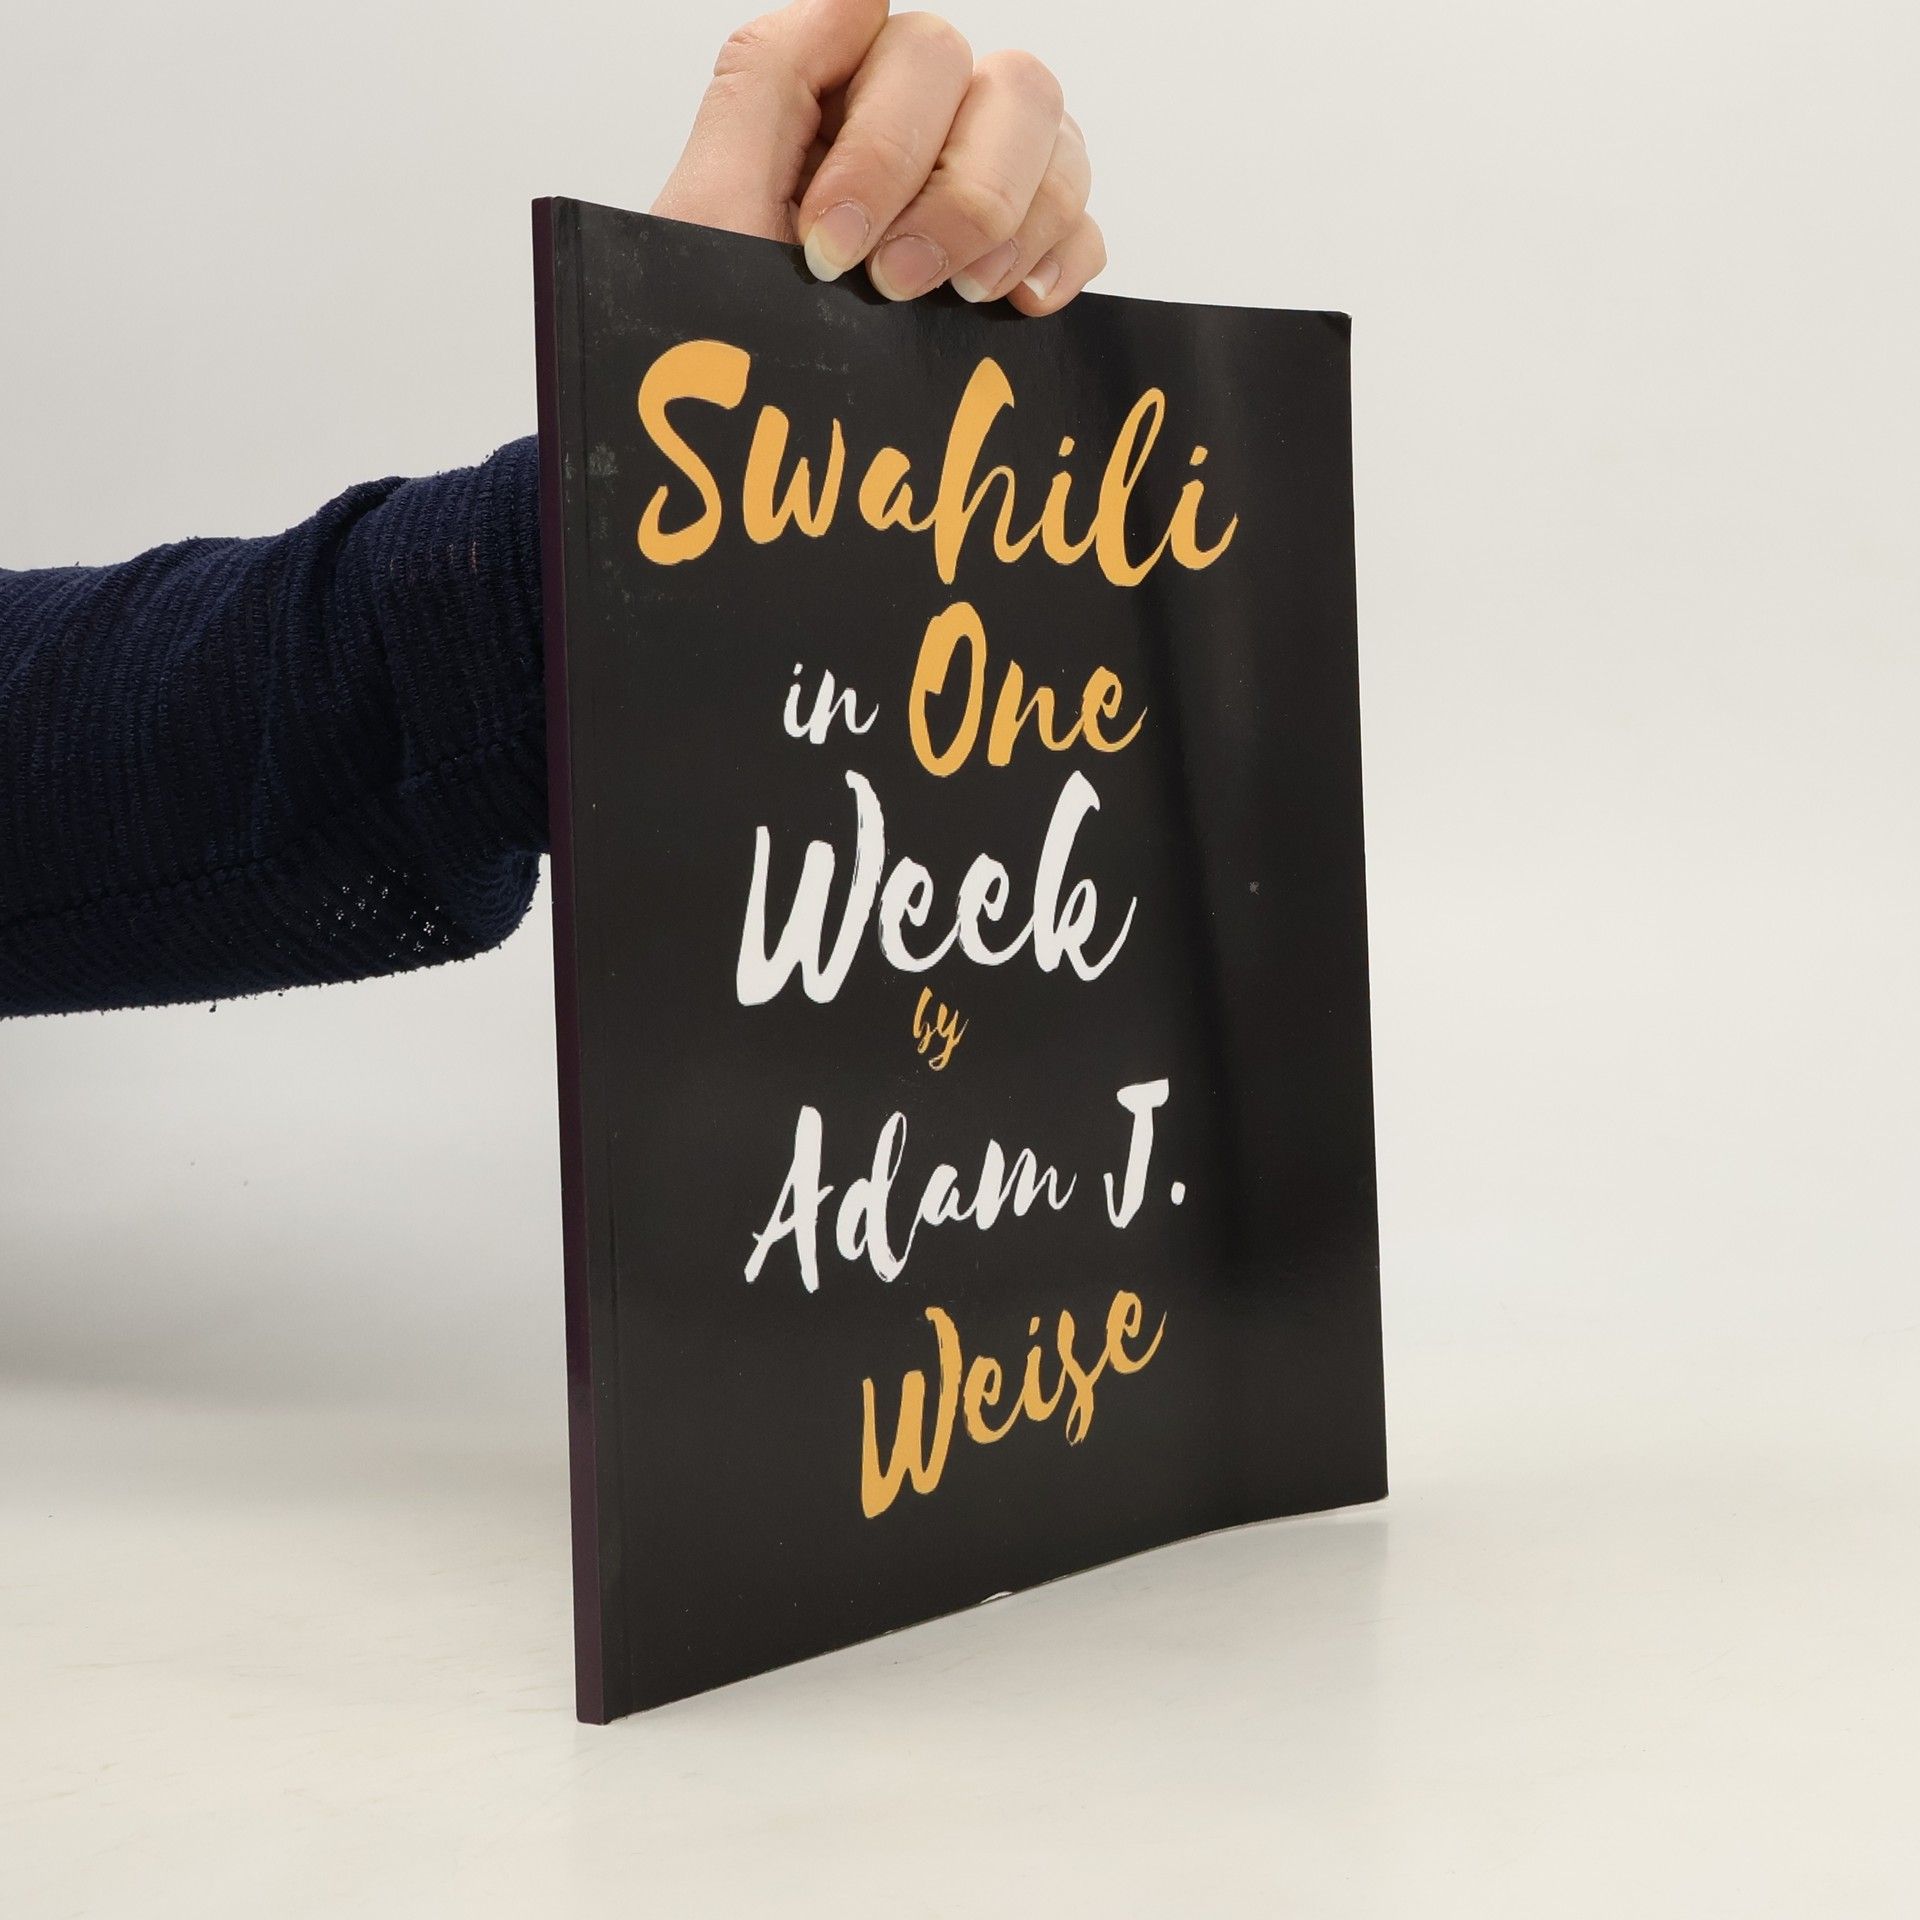 Swahili
in One
Week
by
Adam J.
Weise